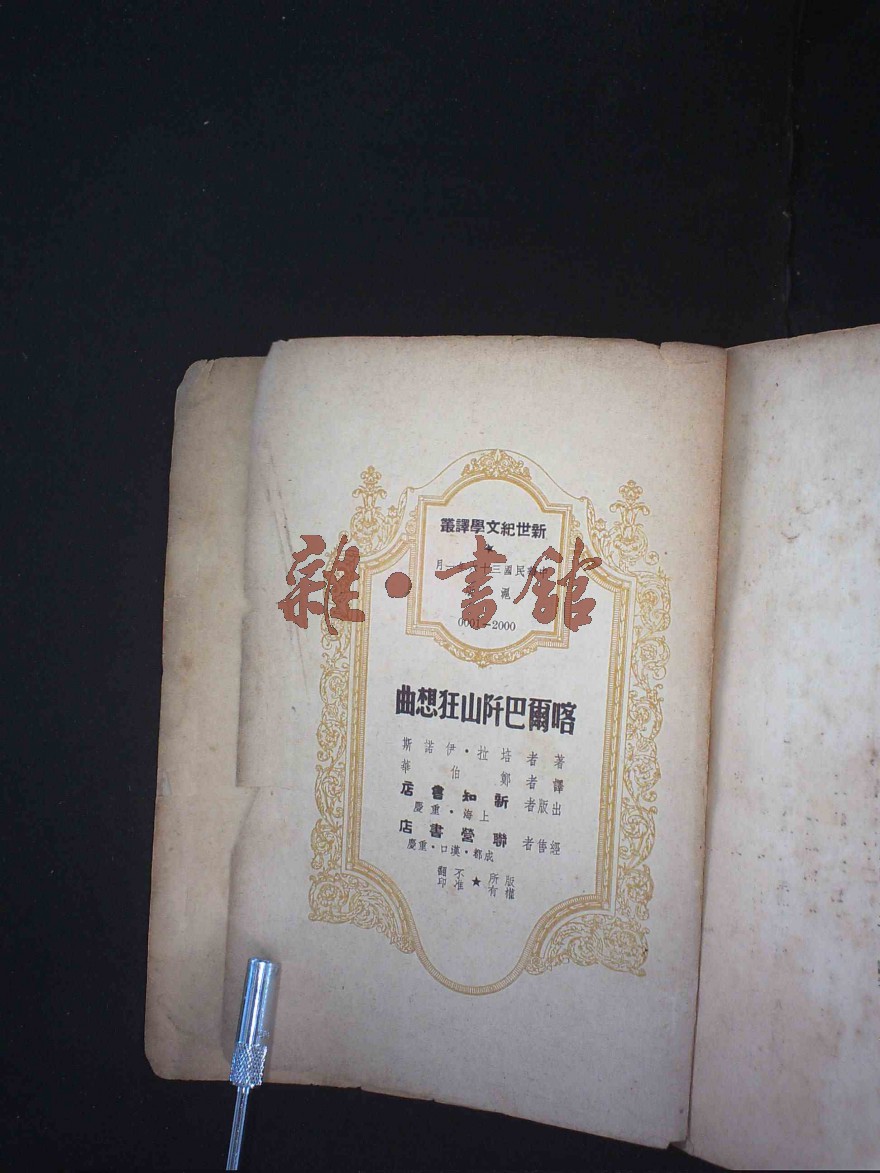 新世紀文學譯叢
★
民國三十一月
滬
0001—2000
喀爾巴阡山狂想曲
著者 培拉・伊諾斯
譯者 鄭伯華
出版者 新知書店
上海・重慶
經售者 聯營書店
成都・漢口・重慶
版權所有★不准翻印
雜・書館